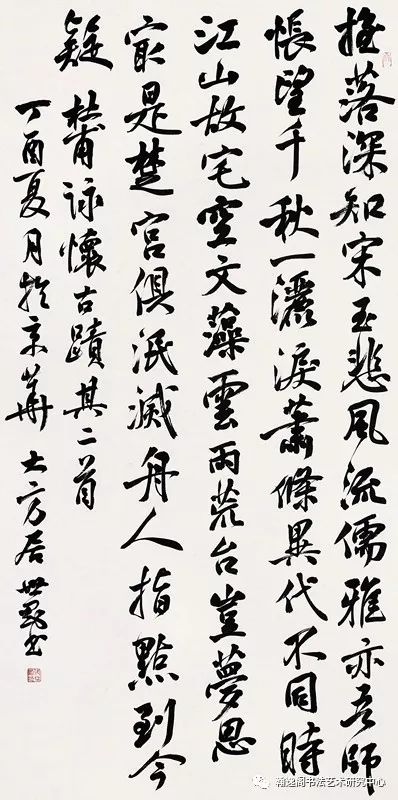 搖落深知宋玉悲風流儒雅亦吾師
悵望千秋一灑淚蕭條異代不同時
江山故宅空文藻雲雨荒台豈夢思
最是楚宮俱泯滅舟人指點到今
疑 杜甫詠懷古蹟其二首
丁酉夏月於京華 大方居 世書
翰逸阁书法艺术研究中心